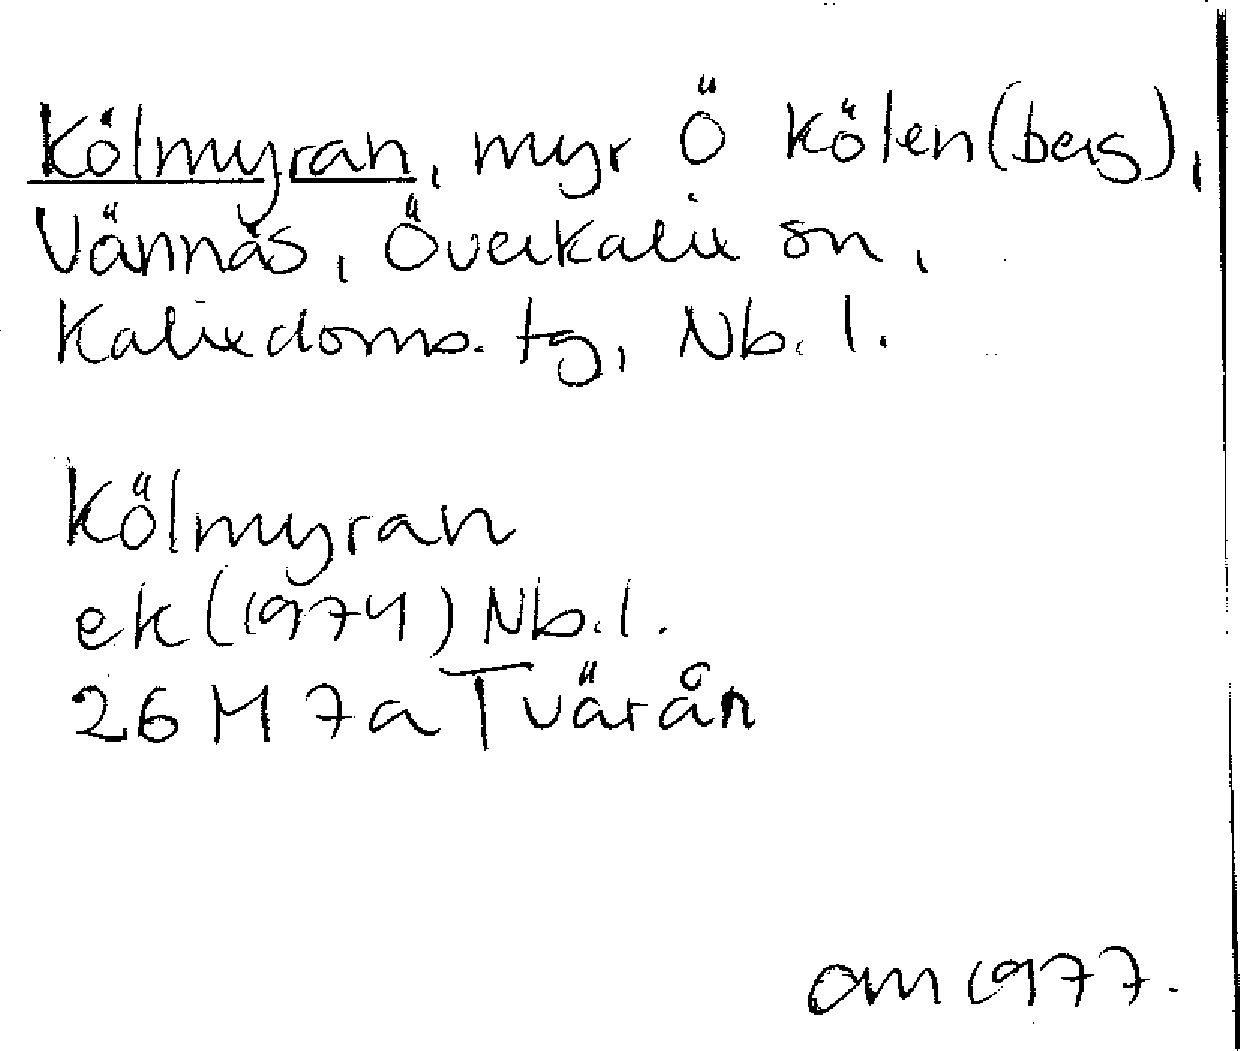 Kölmyran, myr Ö Kölen (berg),
Vännäs, Överkalix sn,
Kalixdoms. tg, Nb. l.
Kölmyran
ek (1974) Nb. l.
26 M 7a Tvärån
am 1977.